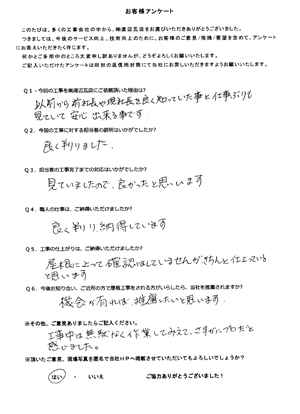 お客様アンケート
このたびは、多くの工事会社の中から、㈱渡辺瓦店をお選びいただきありがとうございました。
つきましては、今後のサービス向上と、技術向上のために、お客様のご意見・指摘・要望を含めて、アンケート
にお答えいただきたく存じます。
何かとご多用中のところ大変申し訳ありませんが、どうぞよろしくお願いいたします。
ご記入いただけたアンケートは同封の返信用封筒にて当社にお戻しいただきますようお願いいたします。
Q1・今回の工事を㈱渡辺瓦店にご依頼頂いた理由は?
以前から前社長や現社長を良く知っていた事と仕事ぶりも
見ていて安心出来る事です
Q2・今回の工事に対する担当者の説明はいかがでしたか?
良く判りました
Q3. 担当者の工事完了までの対応はいかがでしたか?
見ていましたので、良かったと思います
Q4. 職人の仕事は、ご納得いただけましたか?
良く判り、納得しています
Q5. 工事の仕上がりは、ご納得いただけましたか?
屋根に上って確認はしていませんがきちんと仕上っている
と思います
Q6. 今後お知り合い、ご近所の方で屋根工事をされる方がいらしたら、当社を推薦されますか?
機会が有れば、推薦したいと思います
※その他、ご意見ありましたらご記入ください。
工事中は無駄なく作業してみえて、さすがにプロだと
感じました。
※頂いたご意見、現場写真を匿名で当社HPへ掲載させていただいてもよろしいでしょうか?
はい ・ いいえ ご協力ありがとうございました!